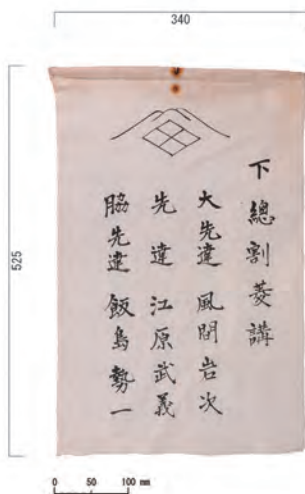 340
525
下總割菱講
大先達 風間岩次
先達 江原武義
脇先達 飯島勢一
0 50 100 mm